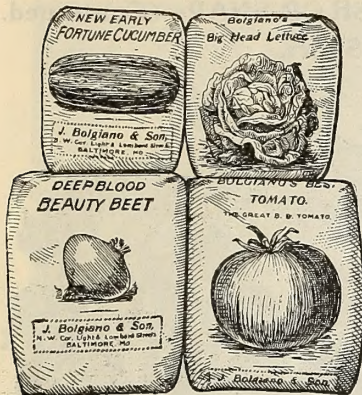 NEW EARLY
FORTUNE CUCUMBER
J. Bolgiano & Son,
N.W. Cor. Light & Lombard Streets
BALTIMORE, MD
Bolgiano's
Big Head Lettuce
DEEP BLOOD
BEAUTY BEET
J. Bolgiano & Son,
N.W. Cor. Light & Lombard Streets
BALTIMORE, MD
BOLGIANO'S BEST
TOMATO.
THE GREAT B. B. TOMATO.
J. Bolgiano & Son